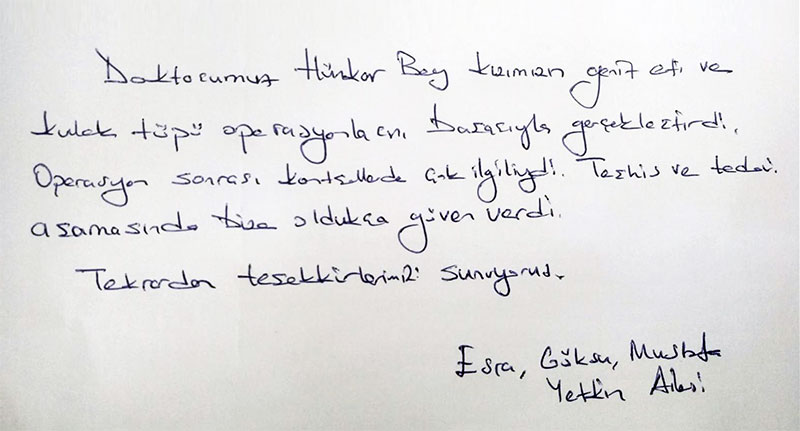 Doktorumuz Hünkar Bey kızımızın geniz eti ve
kulak tüpü operasyonlarını başarıyla gerçekleştirdi.
Operasyon sonrası kontrollerde çok ilgiliydi. Teşhis ve tedavi
aşamasında bize oldukça güven verdi.
Tekrardan teşekkürlerimizi sunuyoruz.
Esra, Göksu, Mustafa
Yetkin Ailesi